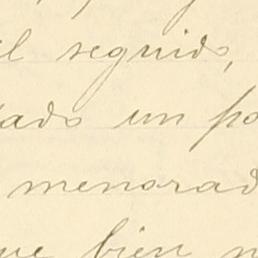 el seguido,
ado un po
menorad
que bien n